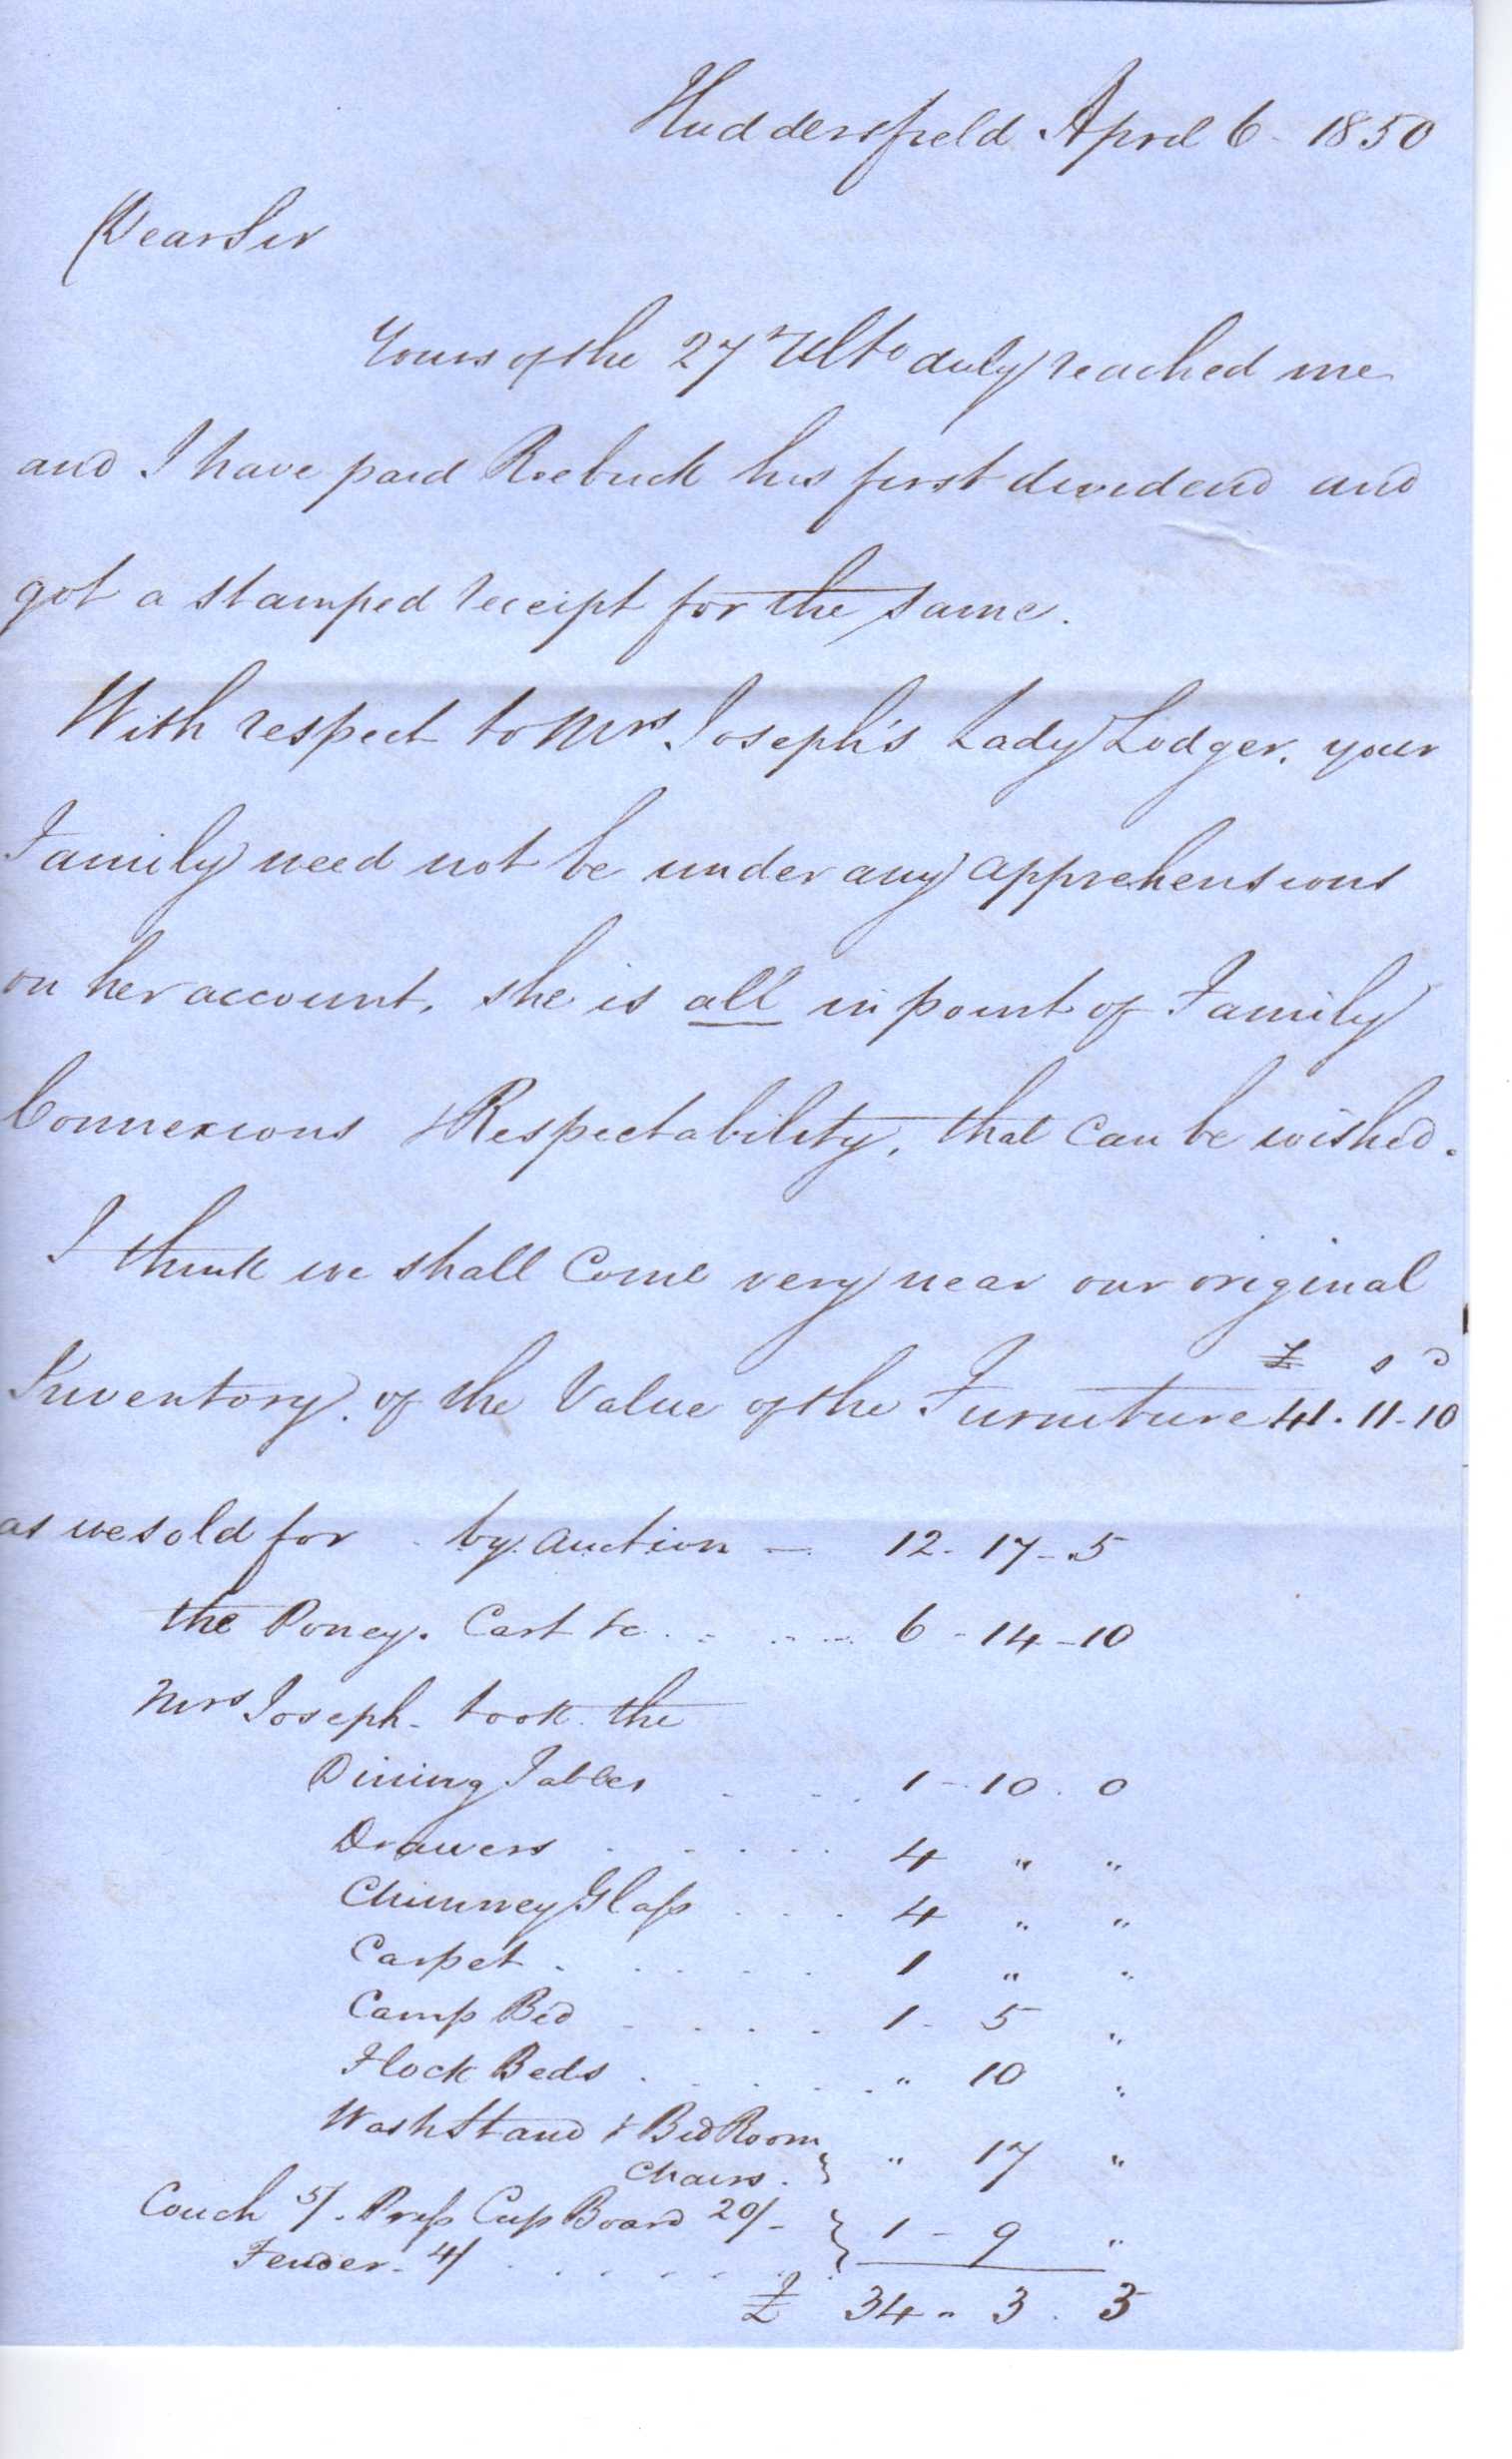 Huddersfield April 6 - 1850
Dear Sir
Yours of the 27 Ulto duly reached me
and I have paid Roebuck his first dividend and
got a stamped receipt for the same.
With respect to Mrs. Joseph's Lady Lodger, your
Family need not be under any apprehensions
on her account, she is all in point of Family
Connexions & Respectability, that can be wished.
I think we shall Come very near our original
£ s d
Inventory of the Value of the Furniture 41. 11 - 10
as we sold for by auction — 12 - 17 - 5
the Poney. Cart &c. . . . . 6 - 14 - 10
Mrs Joseph - took the
Dining Tables . . . 1 - 10 . 0
Drawers . . . . . 4 " "
Chimney Glass . . . 4 " "
Carpet . . . . . . 1 " "
Camp Bed . . . . 1 - 5 "
Flock Beds . . . . . " 10 "
Wash Stand & Bed Room
Chairs . } " 17 "
Couch 5/. Press Cup Board 20/-
Fender - 4/ . . . . . . } 1 - 9 "
£ 34 " 3 . 3